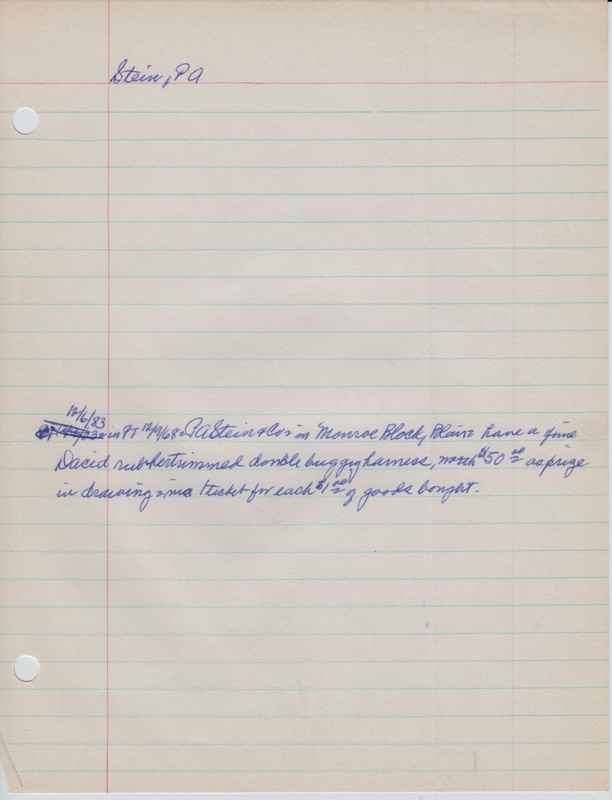 Stein, PA
12/6/83
in PT 12/9/68 - PA Stein & Co - in Monroe Block, Blair - have a fine
David rubber trimmed double buggy harness, worth $50 00 as prize
in drawing - 1 ticket for each $1 00 of goods bought.